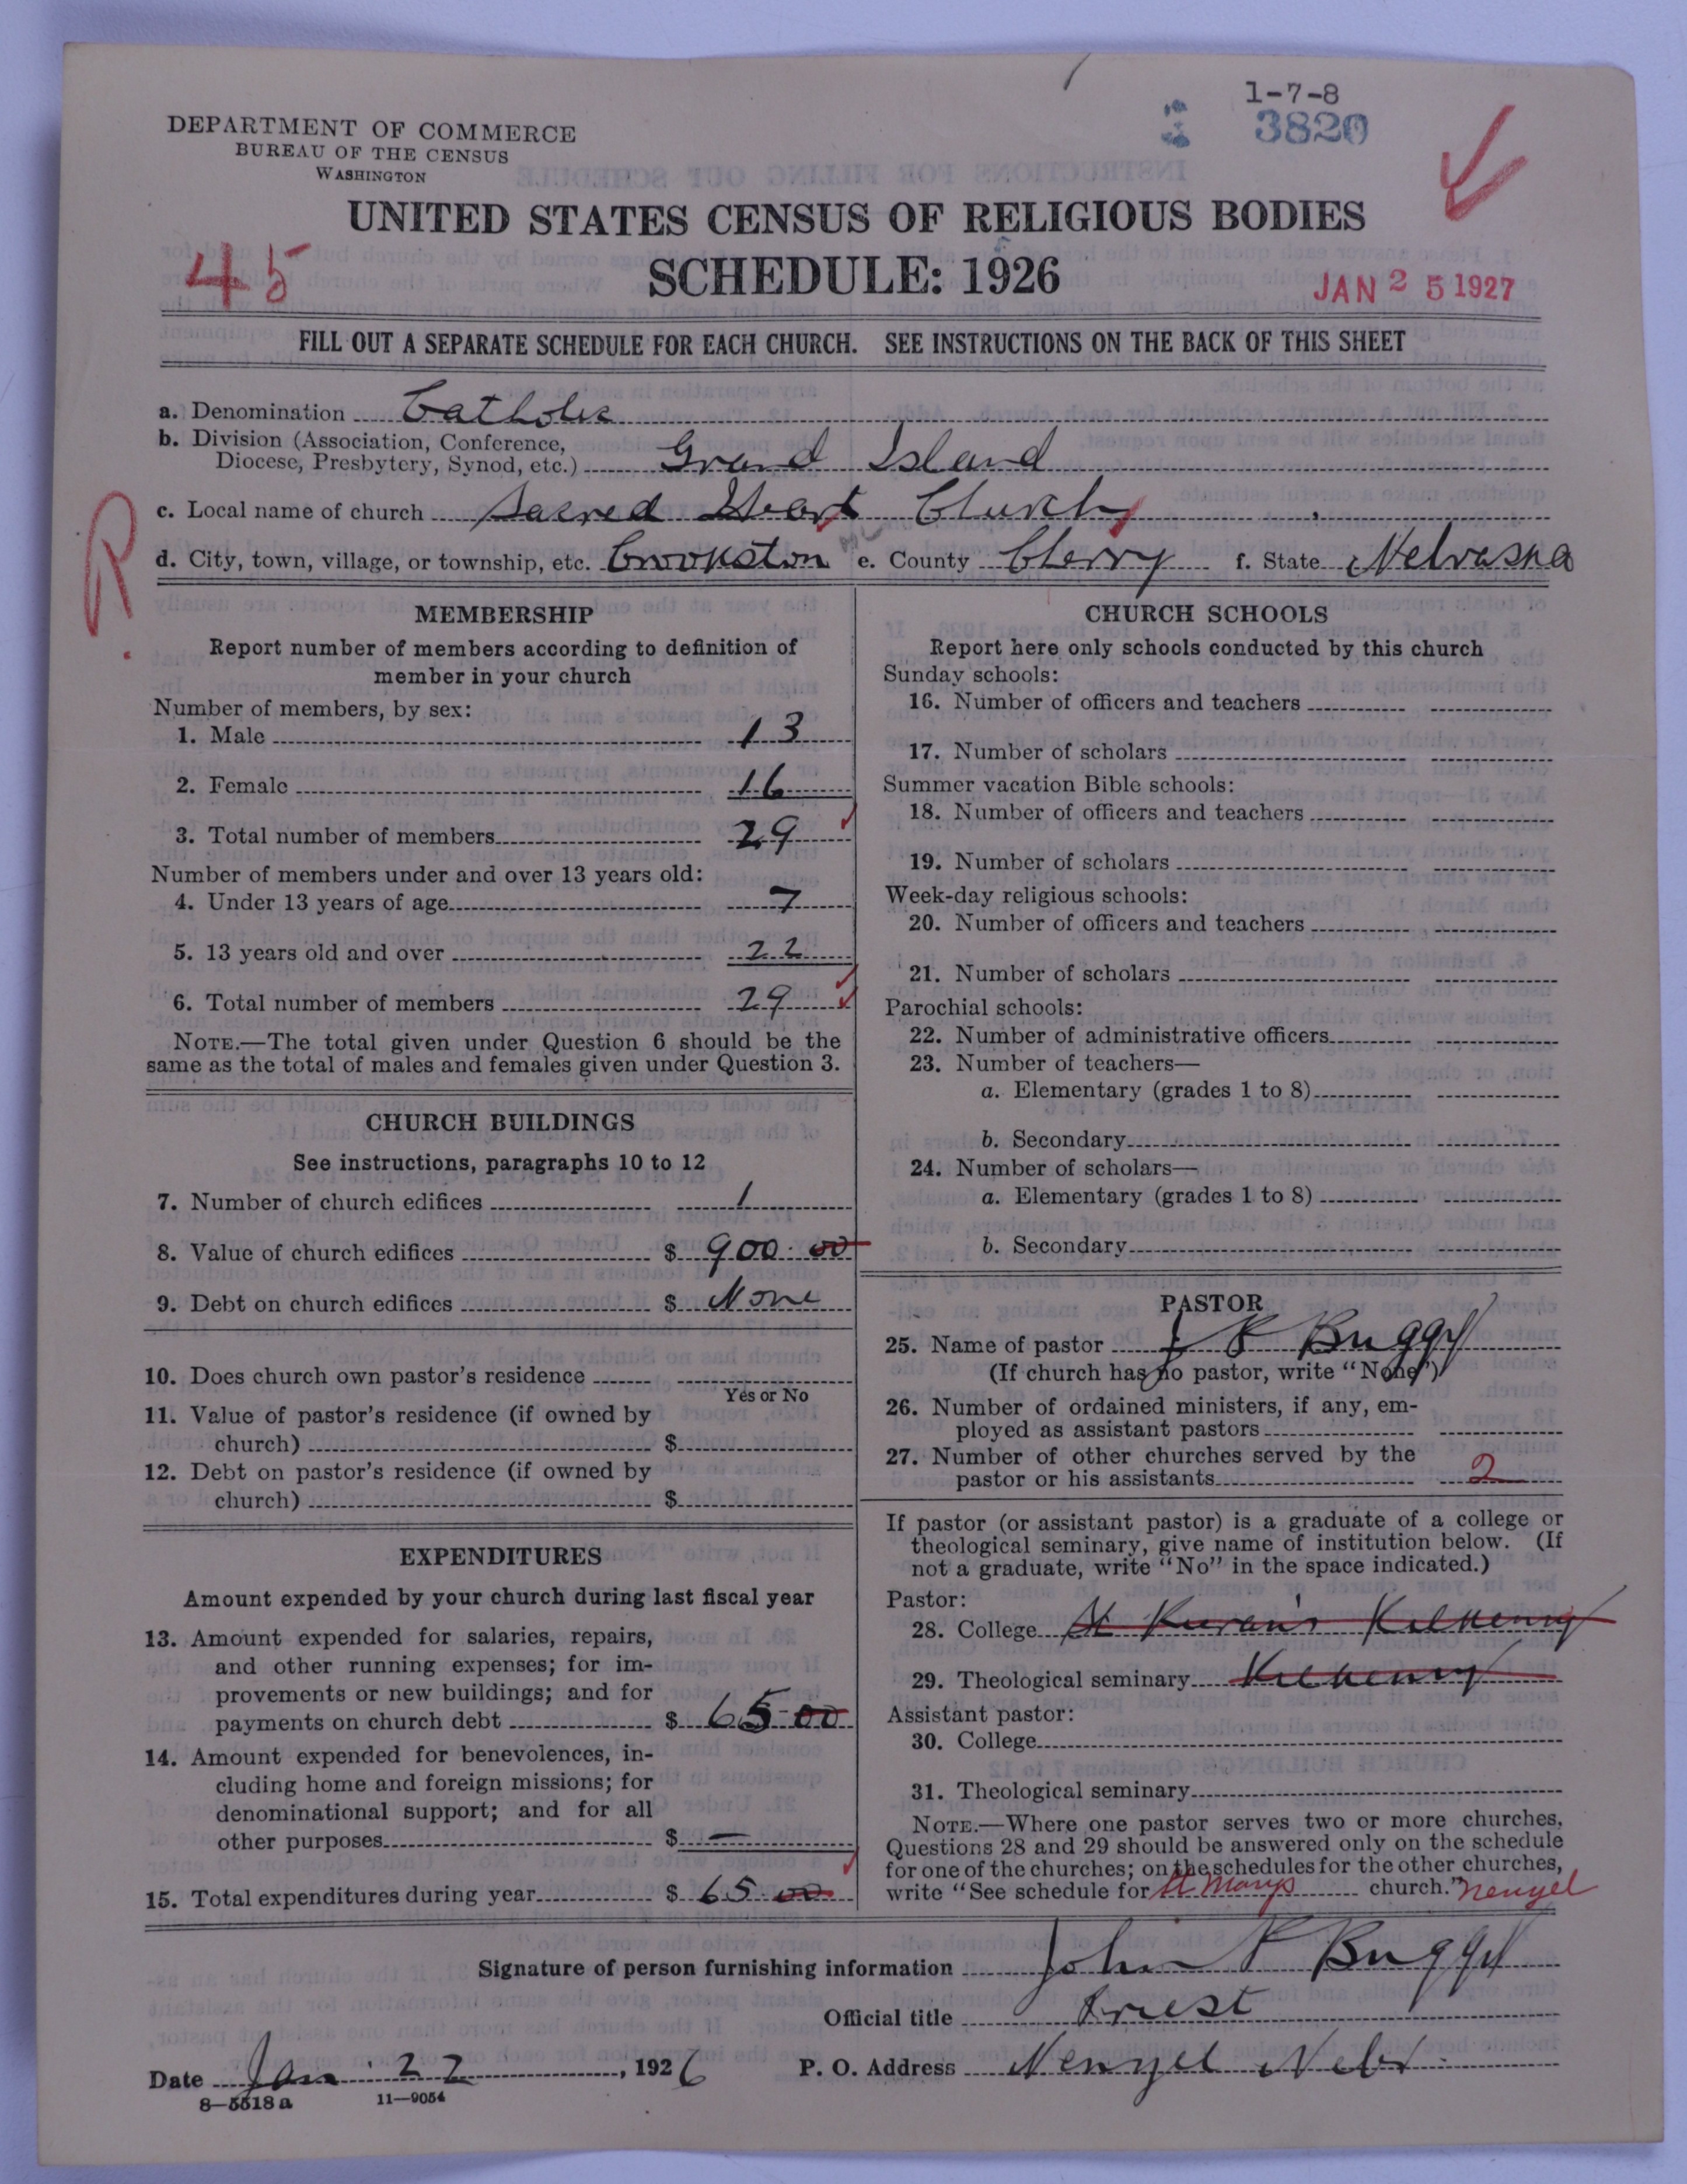 1-7-8
3820
DEPARTMENT OF COMMERCE
BUREAU OF THE CENSUS
WASHINGTON
UNITED STATES CENSUS OF RELIGIOUS BODIES
45
SCHEDULE: 1926
JAN 25 1927
FILL OUT A SEPARATE SCHEDULE FOR EACH CHURCH. SEE INSTRUCTIONS ON THE BACK OF THIS SHEET
a. Denomination Catholic
b. Division (Association, Conference,
Diocese, Presbytery, Synod, etc.) Grand Island
R.
c. Local name of church Sacred Heart Church
d. City, town, village, or township, etc. Crookston e. County Cherry f. State Nebraska
MEMBERSHIP
Report number of members according to definition of
member in your church
Number of members, by sex:
1. Male 13
2. Female 16
3. Total number of members 29
Number of members under and over 13 years old:
4. Under 13 years of age 7
5. 13 years old and over 22
6. Total number of members 29
NOTE.—The total given under Question 6 should be the
same as the total of males and females given under Question 3.
CHURCH BUILDINGS
See instructions, paragraphs 10 to 12
7. Number of church edifices 1
8. Value of church edifices $ 900.00
9. Debt on church edifices $ None
10. Does church own pastor's residence
Yes or No
11. Value of pastor's residence (if owned by
church) $
12. Debt on pastor's residence (if owned by
church) $
EXPENDITURES
Amount expended by your church during last fiscal year
13. Amount expended for salaries, repairs,
and other running expenses; for im-
provements or new buildings; and for
payments on church debt $ 65-00
14. Amount expended for benevolences, in-
cluding home and foreign missions; for
denominational support; and for all
other purposes $ —
15. Total expenditures during year $ 65.00
CHURCH SCHOOLS
Report here only schools conducted by this church
Sunday schools:
16. Number of officers and teachers
17. Number of scholars
Summer vacation Bible schools:
18. Number of officers and teachers
19. Number of scholars
Week-day religious schools:
20. Number of officers and teachers
21. Number of scholars
Parochial schools:
22. Number of administrative officers
23. Number of teachers—
a. Elementary (grades 1 to 8)
b. Secondary
24. Number of scholars—
a. Elementary (grades 1 to 8)
b. Secondary
PASTOR
25. Name of pastor J P Buggy
(If church has no pastor, write "None")
26. Number of ordained ministers, if any, em-
ployed as assistant pastors
27. Number of other churches served by the
pastor or his assistants 2
If pastor (or assistant pastor) is a graduate of a college or
theological seminary, give name of institution below. (If
not a graduate, write "No" in the space indicated.)
Pastor:
28. College St Kieran's Kilkenny
29. Theological seminary Kilkenny
Assistant pastor:
30. College
31. Theological seminary
NOTE.—Where one pastor serves two or more churches,
Questions 28 and 29 should be answered only on the schedule
for one of the churches; on the schedules for the other churches,
write "See schedule for St Marys church." Nenzel
Signature of person furnishing information John P Buggy
Official title Priest
Date Jan 22, 1926 P. O. Address Nenzel Nebr.
8—5518a 11—9054